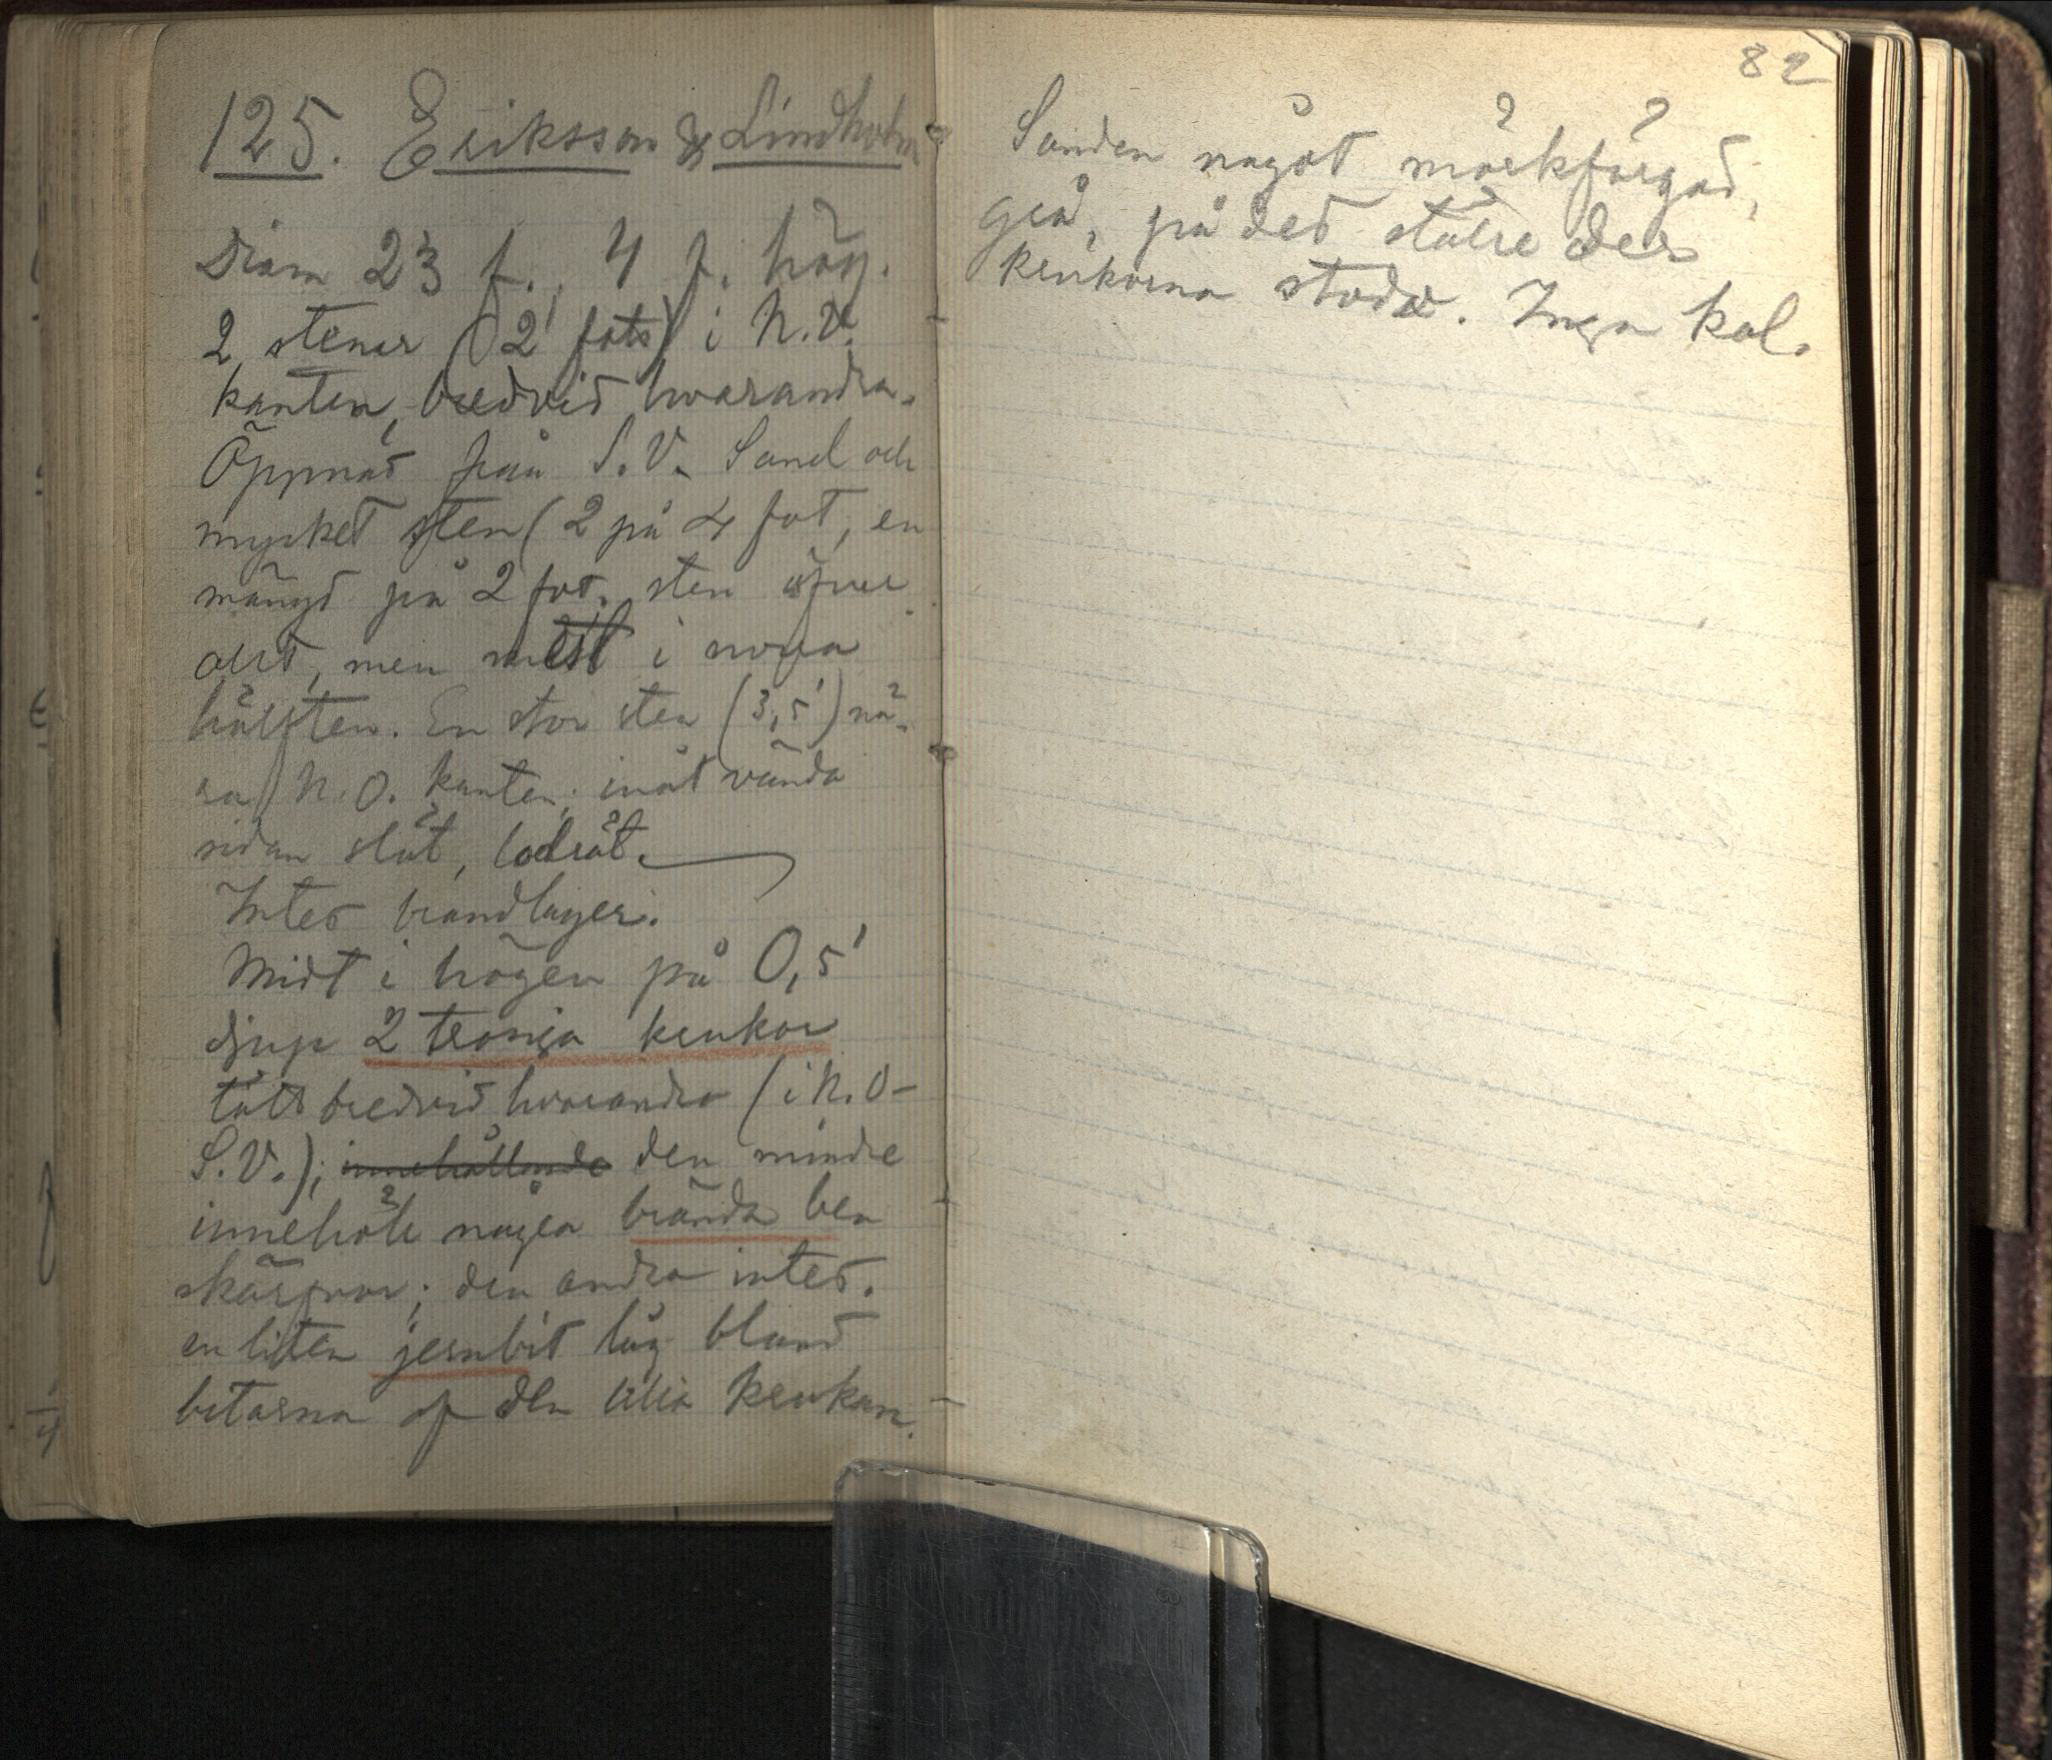 125. Eriksson & Lindholm
Diam 23 f., 4 f. hög.
2 stenar (2' fots) i N.V.
kanten, bredvid hvarandra.
Öppnad från S.V. Sand och
mycket sten (2 på 4 fot, en
mängd på 2 fot. sten öfver
allt, men mest i norra
hälften. En stor sten (3,5') nä-
ra N.O. kanten; inåt vända
sidan slät, lodrät.
Intet brandlager.
Midt i högen på 0,5'
djup 2 trasiga krukor
tätt bredvid hvarandra (i N.O-
S.V.); innehållande den mindre
innehöll några brända ben
skärfvor; den andra intet.
en liten jernbit låg bland
bitarna af den lilla krukan.
82
Sanden något mörkfärgad,
grå, på det ställe der
krukorna stodo. Inga kol.